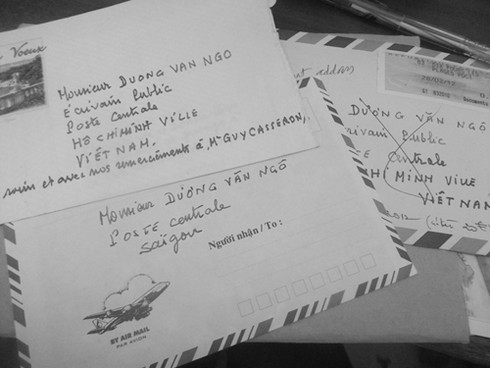 Voeux
Monsieur DUONG VAN NGO
Écrivain Public
Poste Centrale
HÔ CHI MINH VILLE
VIÊTNAM.
soin et avec nos remerciements à, Mr GUY CASSERON,
Monsieur DƯƠNG VĂN NGÔ
POSTE centrale
Saïgon
Người nhận / To :
BY AIR MAIL
PAR AVION
address
DƯƠNG VĂN NGÔ
Écrivain Public
Poste Centrale
CHI MINH VILLE
VIÊTNAM